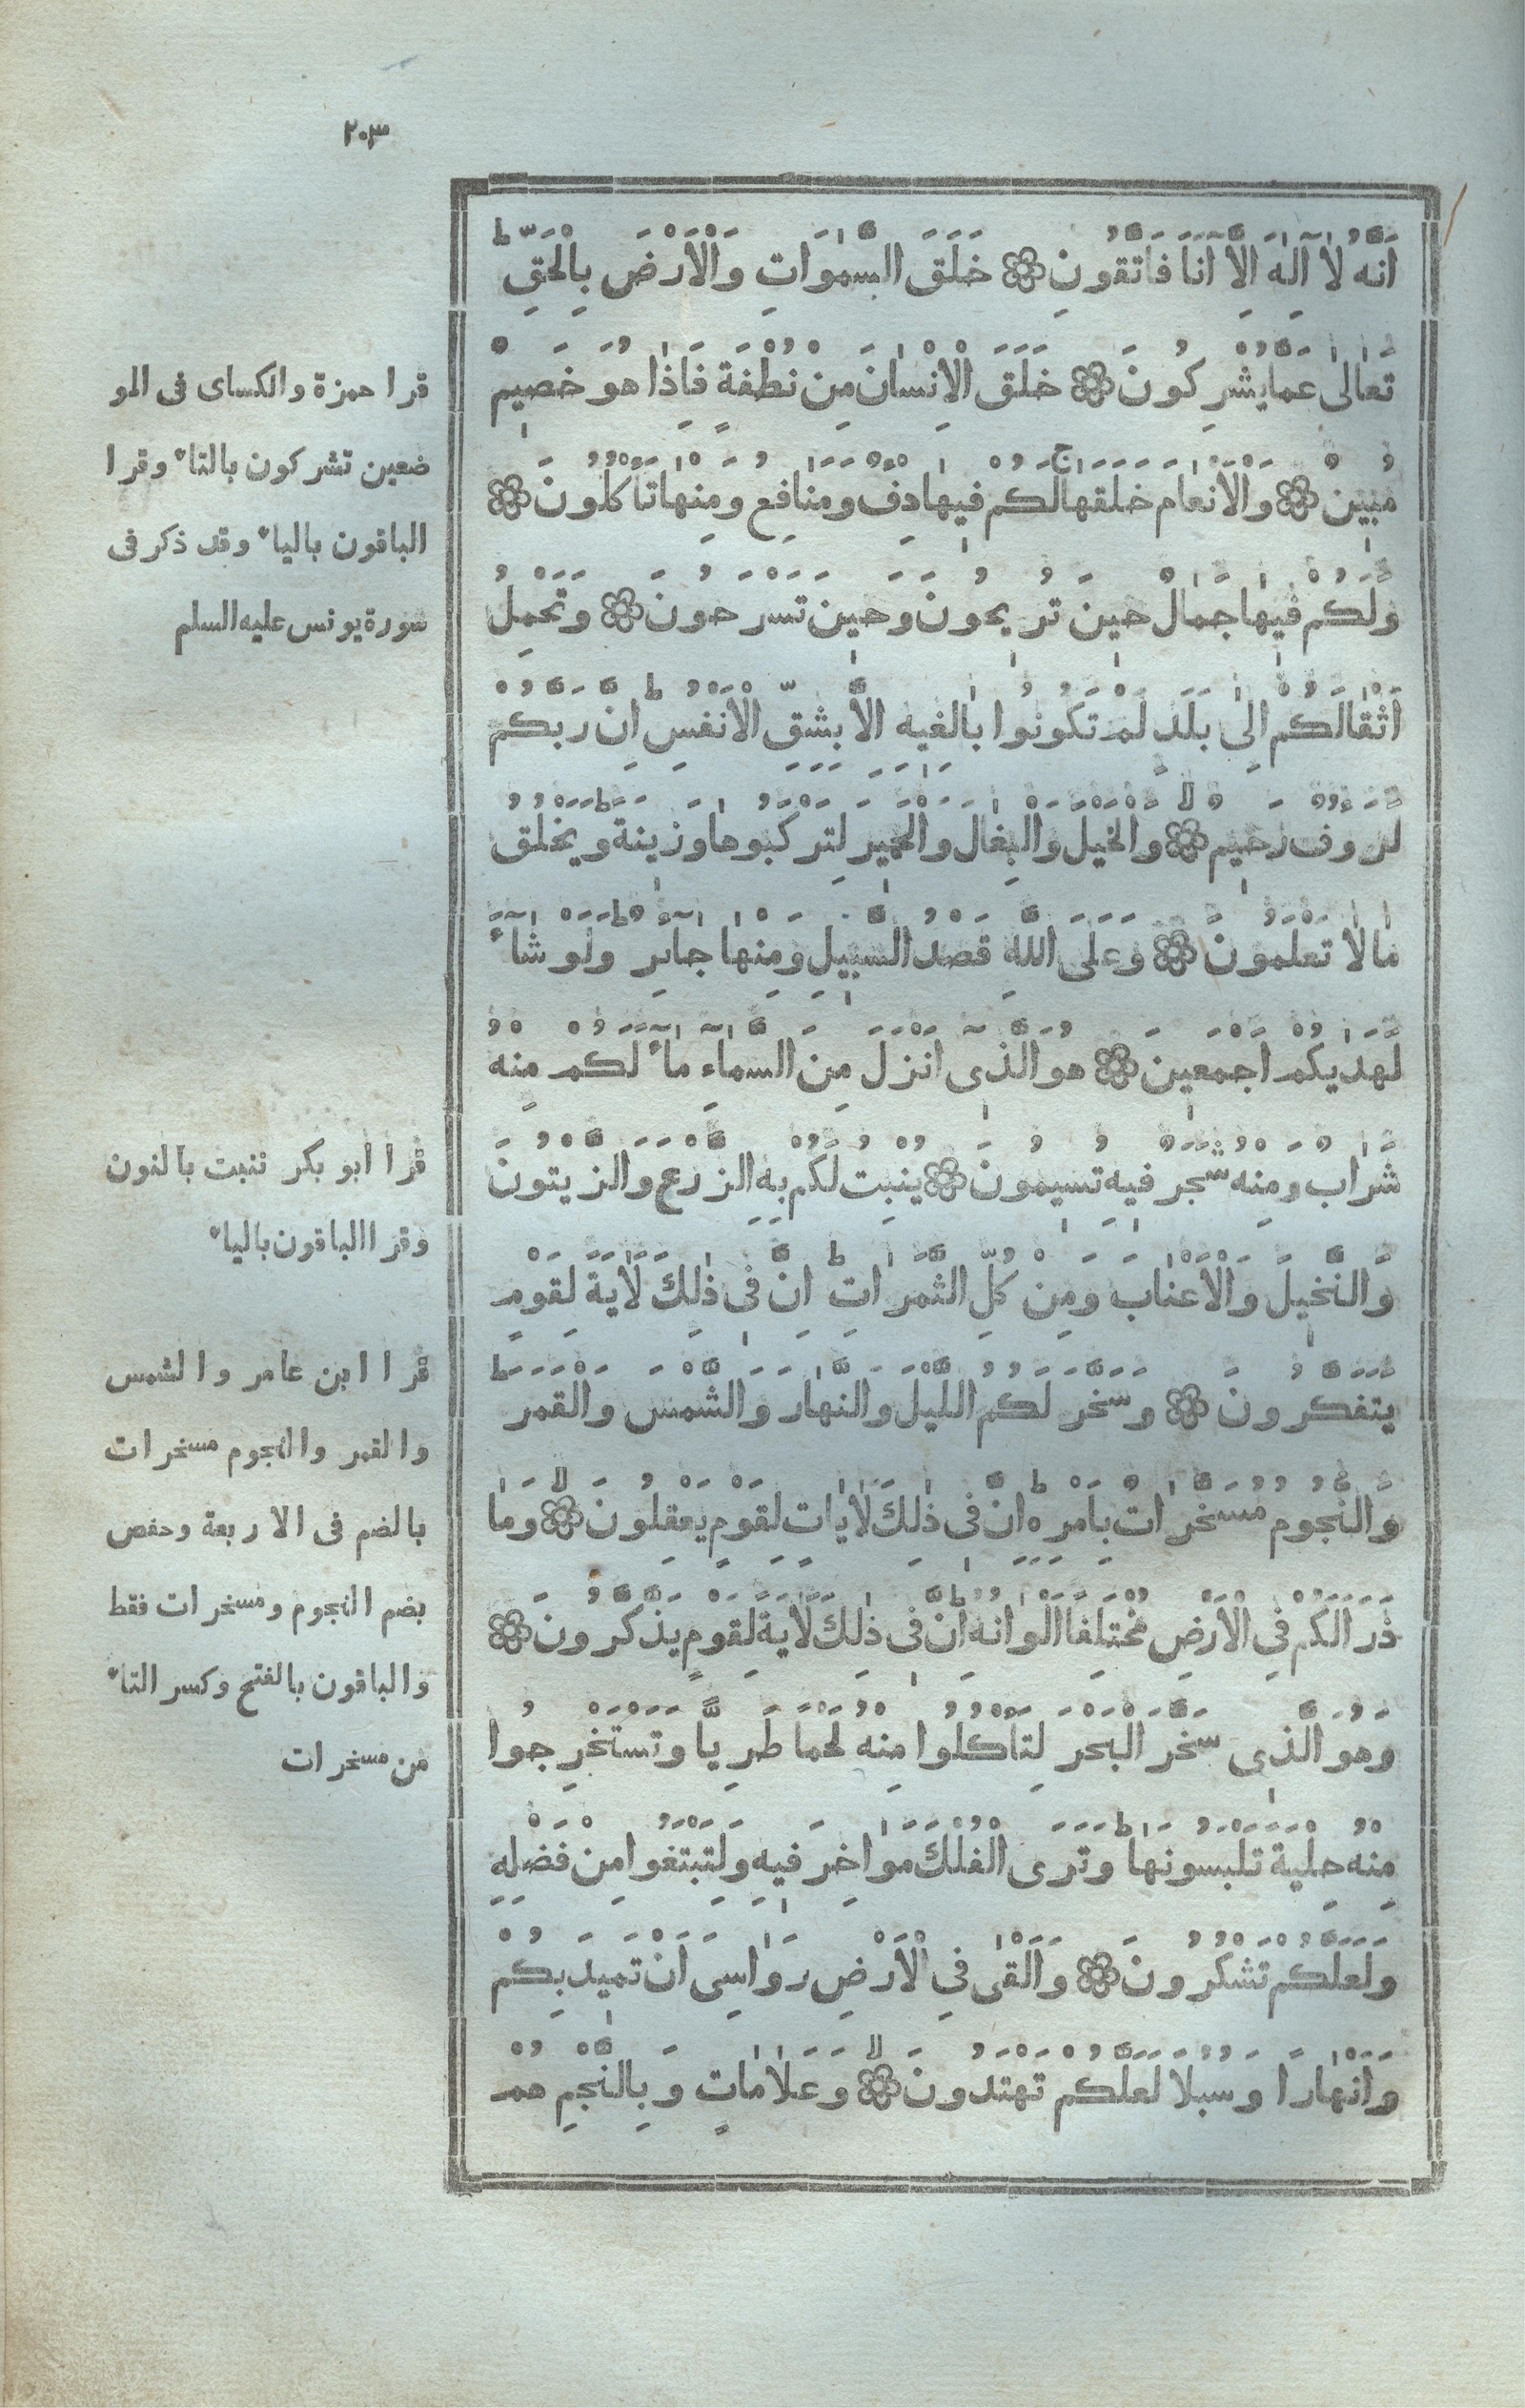 ٢٠٣
اَنَّهُ لٰاۤ اِلٰهَ اِلَّاۤ اَنَا۬ فَاتَّقُونِ ۞ خَلَقَ السَّمٰوَاتِ وَالْاَرْضَ بِالْحَقِّ ط
تَعٰالىٰ عَمّٰا يُشْرِكُونَ ۞ خَلَقَ الْاِنْسٰانَ مِنْ نُطْفَةٍ فَاِذٰا هُوَ خَصِيمٌ
مُبِينٌ ۞ وَالْاَنْعٰامَ خَلَقَهٰا ج لَكُمْ فِيهٰا دِفْءٌ وَمَنٰافِعُ وَمِنْهٰا تَأْكُلُونَ ۞
وَلَكُمْ فِيهٰا جَمٰالٌ حِينَ تُرِيحُونَ وَحِينَ تَسْرَحُونَ ۞ وَتَحْمِلُ
اَثْقٰالَكُمْ اِلىٰ بَلَدٍ لَمْ تَكُونُوا بٰالِغِيهِ اِلَّا بِشِقِّ الْاَنْفُسِ ط اِنَّ رَبَّكُمْ
لَرَءُوفٌ رَحِيمٌ لا ۞ وَالْخَيْلَ وَالْبِغٰالَ وَالْحَمِيرَ لِتَرْكَبُوهٰا وَزِينَةً ط وَيَخْلُقُ
مٰا لٰا تَعْلَمُونَ ۞ وَعَلَى اللّٰهِ قَصْدُ السَّبِيلِ وَمِنْهٰا جٰۤائِرٌ ط وَلَوْ شٰۤاءَ
لَهَدٰيكُمْ اَجْمَعِينَ ۞ هُوَ الَّذِىۤ اَنْزَلَ مِنَ السَّمٰۤاءِ مٰۤاءً لَكُمْ مِنْهُ
شَرٰابٌ وَمِنْهُ شَجَرٌ فِيهِ تُسِيمُونَ ۞ يُنْبِتُ لَكُمْ بِهِ الزَّرْعَ وَالزَّيْتُونَ
وَالنَّخِيلَ وَالْاَعْنٰابَ وَمِنْ كُلِّ الثَّمَرٰاتِ ط اِنَّ فِى ذٰلِكَ لَاٰيَةً لِقَوْمٍ
يَتَفَكَّرُونَ ۞ وَسَخَّرَ لَكُمُ اللَّيْلَ وَالنَّهٰارَ وَالشَّمْسَ وَالْقَمَرَ ط
وَالنُّجُومُ مُسَخَّرٰاتٌ بِاَمْرِهِ ط اِنَّ فِى ذٰلِكَ لَاٰيٰاتٍ لِقَوْمٍ يَعْقِلُونَ لا ۞ وَمٰا
ذَرَاَ لَكُمْ فِى الْاَرْضِ مُخْتَلِفًا اَلْوٰانُهُ ط اِنَّ فِى ذٰلِكَ لَاٰيَةً لِقَوْمٍ يَذَّكَّرُونَ ۞
وَهُوَ الَّذِى سَخَّرَ الْبَحْرَ لِتَأْكُلُوا مِنْهُ لَحْمًا طَرِيًّا وَتَسْتَخْرِجُوا
مِنْهُ حِلْيَةً تَلْبَسُونَهٰا ط وَتَرَى الْفُلْكَ مَوٰاخِرَ فِيهِ وَلِتَبْتَغُوا مِنْ فَضْلِهِ
وَلَعَلَّكُمْ تَشْكُرُونَ ۞ وَاَلْقٰى فِى الْاَرْضِ رَوٰاسِىَ اَنْ تَمِيدَ بِكُمْ
وَاَنْهٰارًا وَسُبُلًا لَعَلَّكُمْ تَهْتَدُونَ لا ۞ وَعَلٰامٰاتٍ وَبِالنَّجْمِ هُمْ
قرا حمزة والكساى فى المو
ضعين تشركون بالتاء وقرا
الباقون بالياء وقد ذكر فى
سورة يونس عليه السلم
قرا ابو بكر ننبت بالنون
وقرا الباقون بالياء
قرا ابن عامر والشمس
والقمر والنجوم مسخرات
بالضم فى الاربعة وحفص
بضم النجوم ومسخرات فقط
والباقون بالفتح وكسر التاء
من مسخرات